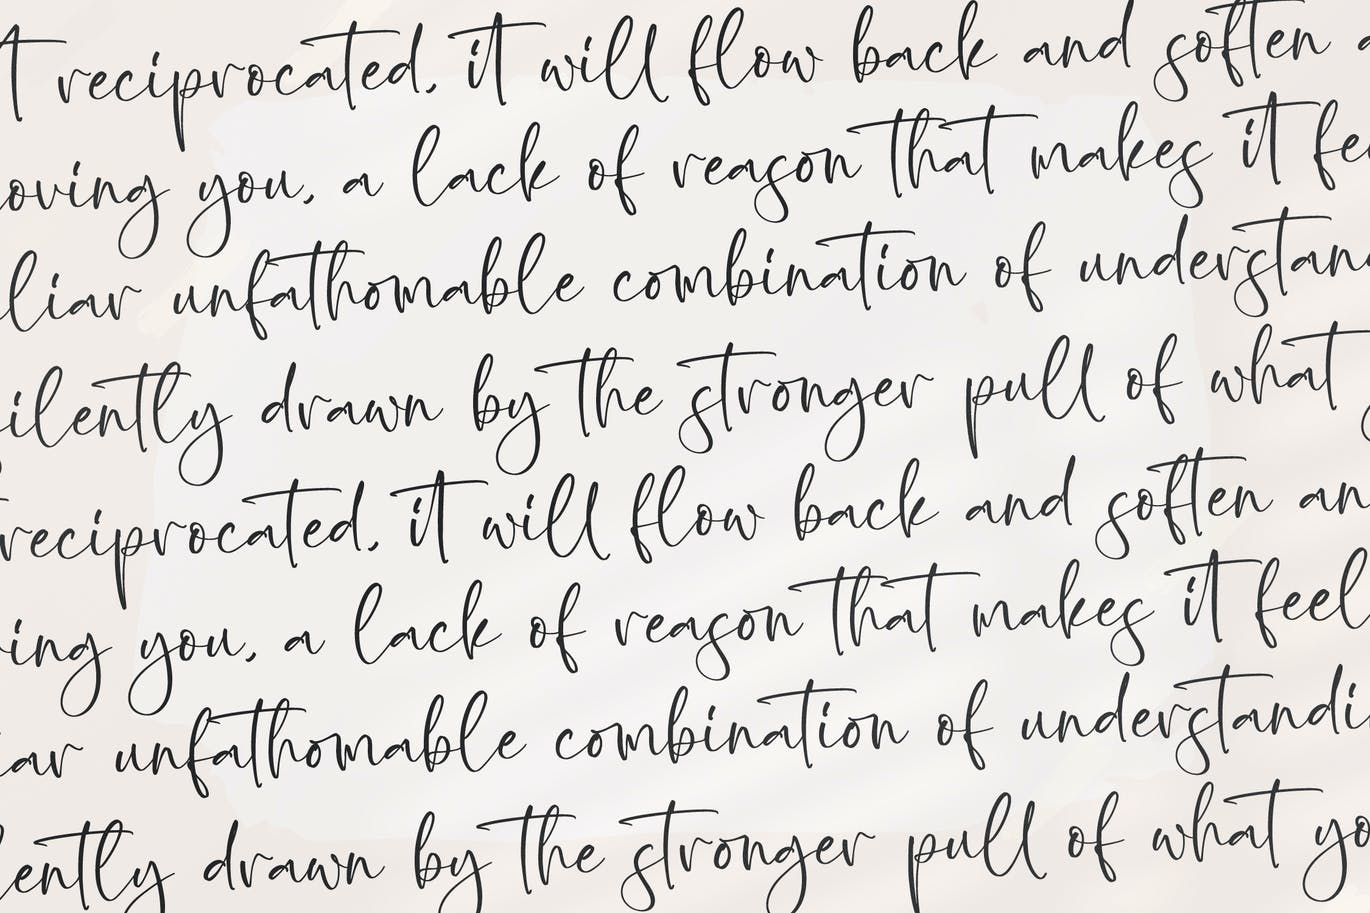 t reciprocated, it will flow back and soften a
oving you, a lack of reason that makes it fee
liar unfathomable combination of understan
ilently drawn by the stronger pull of what
reciprocated, it will flow back and soften an
ing you, a lack of reason that makes it feel
iar unfathomable combination of understandi
ently drawn by the stronger pull of what yo